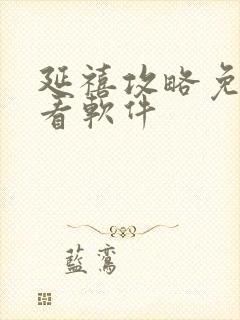 延禧攻略免
看軟件
藍鸞